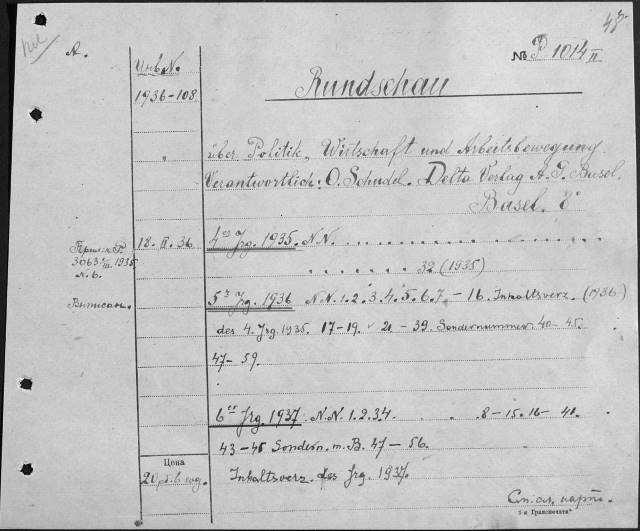 48.
A.
Инв N.
№ P 1014 II
1936-108
Rundschau
über Politik, Wirtschaft und Arbeitsbewegung.
Verantwortlich: O. Schudel. Delta Verlag A. G. Basel.
Basel. 8°
18. II. 36
4er Jrg. 1935. N.N. . . . . . . . . . . . . . .
3063 1935
N. 6.
. . . . . . . 32 (1935)
Выписан.
5r Jrg. 1936 N.N. 1. 2. 3. 4. 5. 6. 7. - 16. Inhaltsverz. (1936)
des 4. Jrg. 1935. 17-19. 21 - 39. Sondernummer. 40-45.
47-59.
6er Jrg. 1937. N.N. 1. 2. 3. 4. . . 8-15. 16- 41.
43-45 Sondern. m. B. 47 - 56.
Цена
Inhaltsverz. des Jrg. 1937.
20 р. б в год.